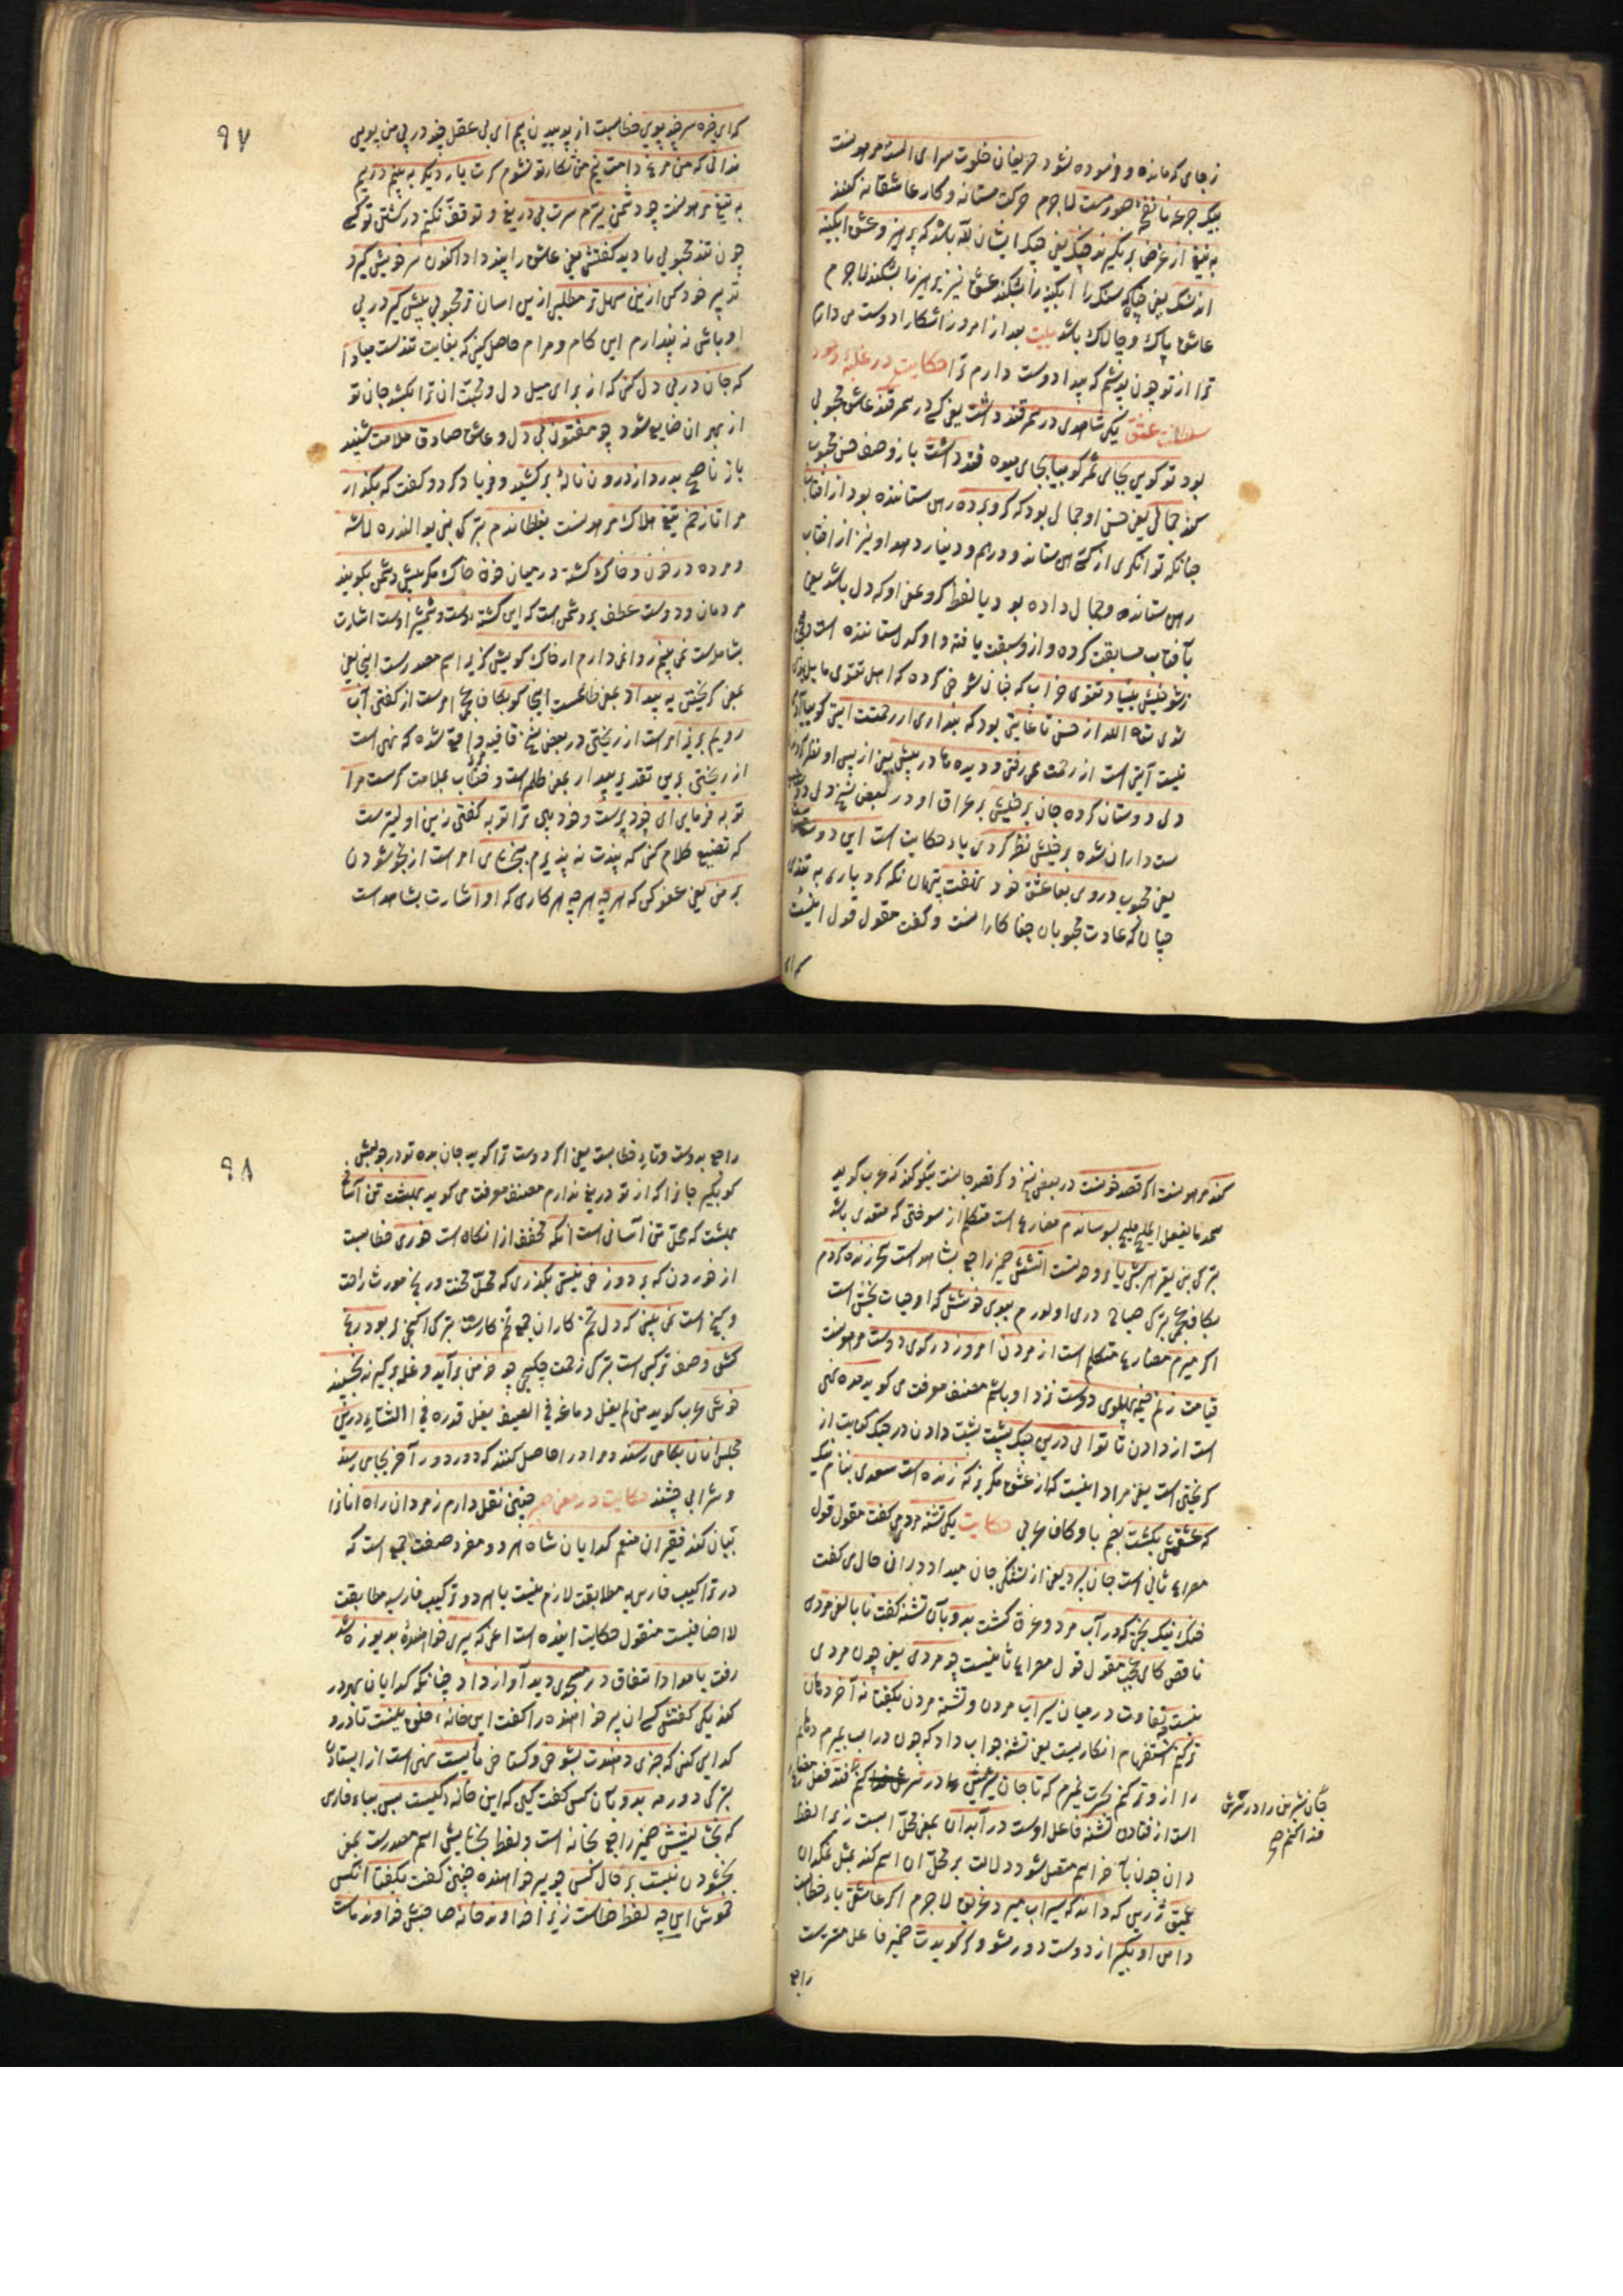 ز جای که مانده و فرسوده نشود حریفان خلوت سرای الست مرهونست
بیک جرعه تا نفخهٔ صورمست لاجرم حرکت مستانه و کار عاشقانه کنند
به تیغ از غرض بر نگیرند چنگ یعنی چنک ایشان بلا باشد که پرهیز و عشق آبکینه
اند سنک یعنی چنانکه سنک را آبکینه را بشکند عشق نیز پرهیز را بشکند لاجرم
عاشق پاک و چالاک باشد بیت بعد از امروز آشکارا دوست می دارم
ترا از تو چون پوشم که پیدا دوست دارم ترا حکایت در غلبهٔ وجد
و سلطنت عشق یکی شاهدی در سمرقند داشت یعنی کسی در سمرقند عاشق محبوبی
بود تو کویی بجای ثمر کوییا بجای میوه قند داشت باز وصف حسن محبوب
کند جمالی یعنی حسن او جمالی بود که کرو برده رهن ستاننده بود از آفتاب
چنانکه توانکری از کسی رهن ستاند و درهم و دینار دهد او نیز از آفتاب
رهن ستانده و جمال داده بود
بآفتاب مسابقت کرده و ازو سبقت یافته
ز شوخیش بنیاد تقوی خراب که چنان شوخی کرده که اهل تقوی مایل
شوی تعالی الله از حسن تا غایتی بود که پنداری از رحمتست آیتی کوییا
نیست آیتی است از رحمت می رفتی و دیده ها در پیش یعنی از پس او نظر کردند
دل دوستان کرده جان برخیش بر عراق او در بعض نسخ دل دو
ستداران شده برخیش نظر کردی یاء حکایت است این دوست
یعنی محبوب در وی بعاشق خود نهفت پنهان نکه کرد باری به تندی
چنان که عادت محبوبان جفاکارانست و کفت مقول قول اینست
که ای
۹۷
که ای خیره سر چند پویی خطابست از پوییدن پیم ای بی عقل چند در پی من پویی
ندانی که من مرغ دامت نیم من شکار تو نشوم کرت بار دیکر ببینم دریم
به تیغ مرهونست چو دشمن ببرم سرت بی دریغ و توقف نکنم در کشتن تو کسی
چون تند محبوبی را دید کفتش یعنی عاشق را پند داد اکنون سر خویش کیر و
تدبیر خود کن ازین سهلتر مطلبی ازین آسانتر محبوبی پیش کیر در پی
او باش نه پندارم این کام و مرام حاصل کنی که بغایت تندست مبادا
که جان در پی دل کنی که از برای میل دل و محبت آن ترا بکشد جان تو
از بهر آن ضایع شود چو مفتون بی دل و عاشق صادق ملامت شنید
باز ناصح بدرد از درون ناله بر کشید و فریاد کرد و کفت که بکذار
مرا تا زخم تیغ هلاک مرهونست بغلطاندم
و مرده در خون و خاک کشته در میان خون خاک مکر پیش دشمن بکویند
مردمان و دوست عطف بر دشمن است که این کشته دوست و شمشیر اوست اشارت
بشاهدست نمی بینم روا نمی دارم از خاک کویش کریز اسم مصدرست اینجا یعنی
بمعنی کریختن به بیداد بمعنی ظلمست اینجا کو بکاف عجمی امرست از کفتن آب
رویم بریز امرست از ریختن در بعض نسخ قافیه واقع شده که نهی است
از ریختن برین تقدیر بیداد بمعنی ظلم است و خطاب بملامت کرست مرا
توبه فرمایی ای خودپرست و خودبین ترا توبه کفتن زین اولیترست
که تضییع کلام کنی که پندت نه پذیرم ببخشای امر است از بخشودن
بر من یعنی عفو کن که هرچه هر چه هر کاری که او اشارت بشاهدست
کند مرهونست اکر قصد خونست در بعض نسخ و کر قصد جانست نیکو کند که عرب کوید
کل ما یفعل الملیح ملیح بسوساندم مضارع است متکلم از سوختن که متعدی باشد
بترکی بنی یقر هر شبی یاء وحدتست آتشش ضمیر راجع بشاهد است سحر زنده کردم
بکاف عجمی بترکی صباح دری اولورم ببوی خوشش که او حیات بخش است
اکر میرم مضارع متکلم است از مردن امروز در کوی دوست مرهونست
قیامت زنم خیمه پهلوی دوست نزد او باشم مصنف معرفت می کوید مده نهی
است از دادن تا توانی درین جنک پشت پشت دادن در جنک کنایت از
کریختن است یعنی مراد اینست که از عشق مکریز که زنده است سعدی بنام نیک
که عشقش بکشت بضم با و کاف عربی حکایت یکی تشنه مردی می کفت مقول قول
مصراع ثانی است جان سپرد یعنی از تشنکی جان میداد در آن حال می کفت
خنک نیک بختی که در آب مرد و غرق کشت بدو بآن تشنه کفت نا بالغی مردی
ناقص کای عجب مقول قول مصراع ثانیست چو مردی یعنی چون مردی
نیست تفاوت در میان سیراب مردن و تشنه مردن بکفتا نه آخر دهان
ترکنم استفهام انکاریست یعنی تشنه جواب داد که چون در آب بمیرم دهانم
را از و تر کنم بحسرت نمیرم که تا جان شیرینش در سرش کنم فتد فعل مضارع
جان شیرین را در سرش
فدا کنم صح
است از فتادن تشنه فاعل اوست در آبدان بمعنی محل آبست زیرا لفظ
دان چون بآخر اسم متصل شود دلالت بر محل آن اسم کند مثل نمکدان
عمیق ژرین که داند که سیراب میرد غریق لاجرم اکر عاشقی یاء خطابست
دامن او بکیر از دوست دور مشو و کر کویدت ضمیر فاعل مستترست
راجع
۹۸
راجع بدوست و تاء خطابست یعنی اکر دوست ترا کوید جان بده تو در جوابش
کو بکیر جانرا که از تو دریغ ندارم مصنف معرفت می کوید بهشت تن آسانی
بهشت که محل تن آسانی است آنکه مخفف از آنکاه است خوری خطابست
از خوردن که بر دوزخ نیستی بکذری که محل محنت و رنج مورث راحت
و کنج است نمی بینی که دل تخم کاران جمع تخم کارست بترکی اکنجی لر بود رنج
کش وصف ترکیبی است بترکی زحمت چکیجی چو خرمن برآید و غله برکیرند بخسپند
خوش عرب کوید من لم یغل دماغه فی الصیف یغل قدره فی الشتاء درین
مجلس آنان بکامی رسند و مراد را حاصل کنند که در دور آخر بجامی رسند
و شرابی چشند حکایت در معنی صبر چنین نقل دارم ز مردان راه آنانرا
بیان کند فقیران منعم کدایان شاه هر دو مفرد صفت جمع است که
در تراکیب فارسی مطابقت لازم نیست یا هر دو ترکیب فارسیه مطابقت
لا اضافیست منقول حکایت آینده است اعنی که پیری خواهنده بدریوزه شد
رفت بامداد اتفاق در مسجدی دید آواز داد چنانکه کدایان بهر در
کند یکی کفتش کسی آن پیر خواهنده را کفت این خانهٔ خلق نیست تا در و
کدایی کنی که چیزی دهندت بشوخی و کستاخی مایست نهی است از ایستادن
بترکی دورمه بدو بآن کس کفت کیی که این خانهٔ کیست پس بباء فارسی
که بخشایش ضمیر راجع بخانه است و لفظ بخشایش اسم مصدرست بمعنی
بخشودن نیست بر حال کس چو پیر خواهنده چنین کفت بکفتا آنکس
خموش این چه لفظ خطاست زیرا خداوند خانه صاحبش خداوند ماست